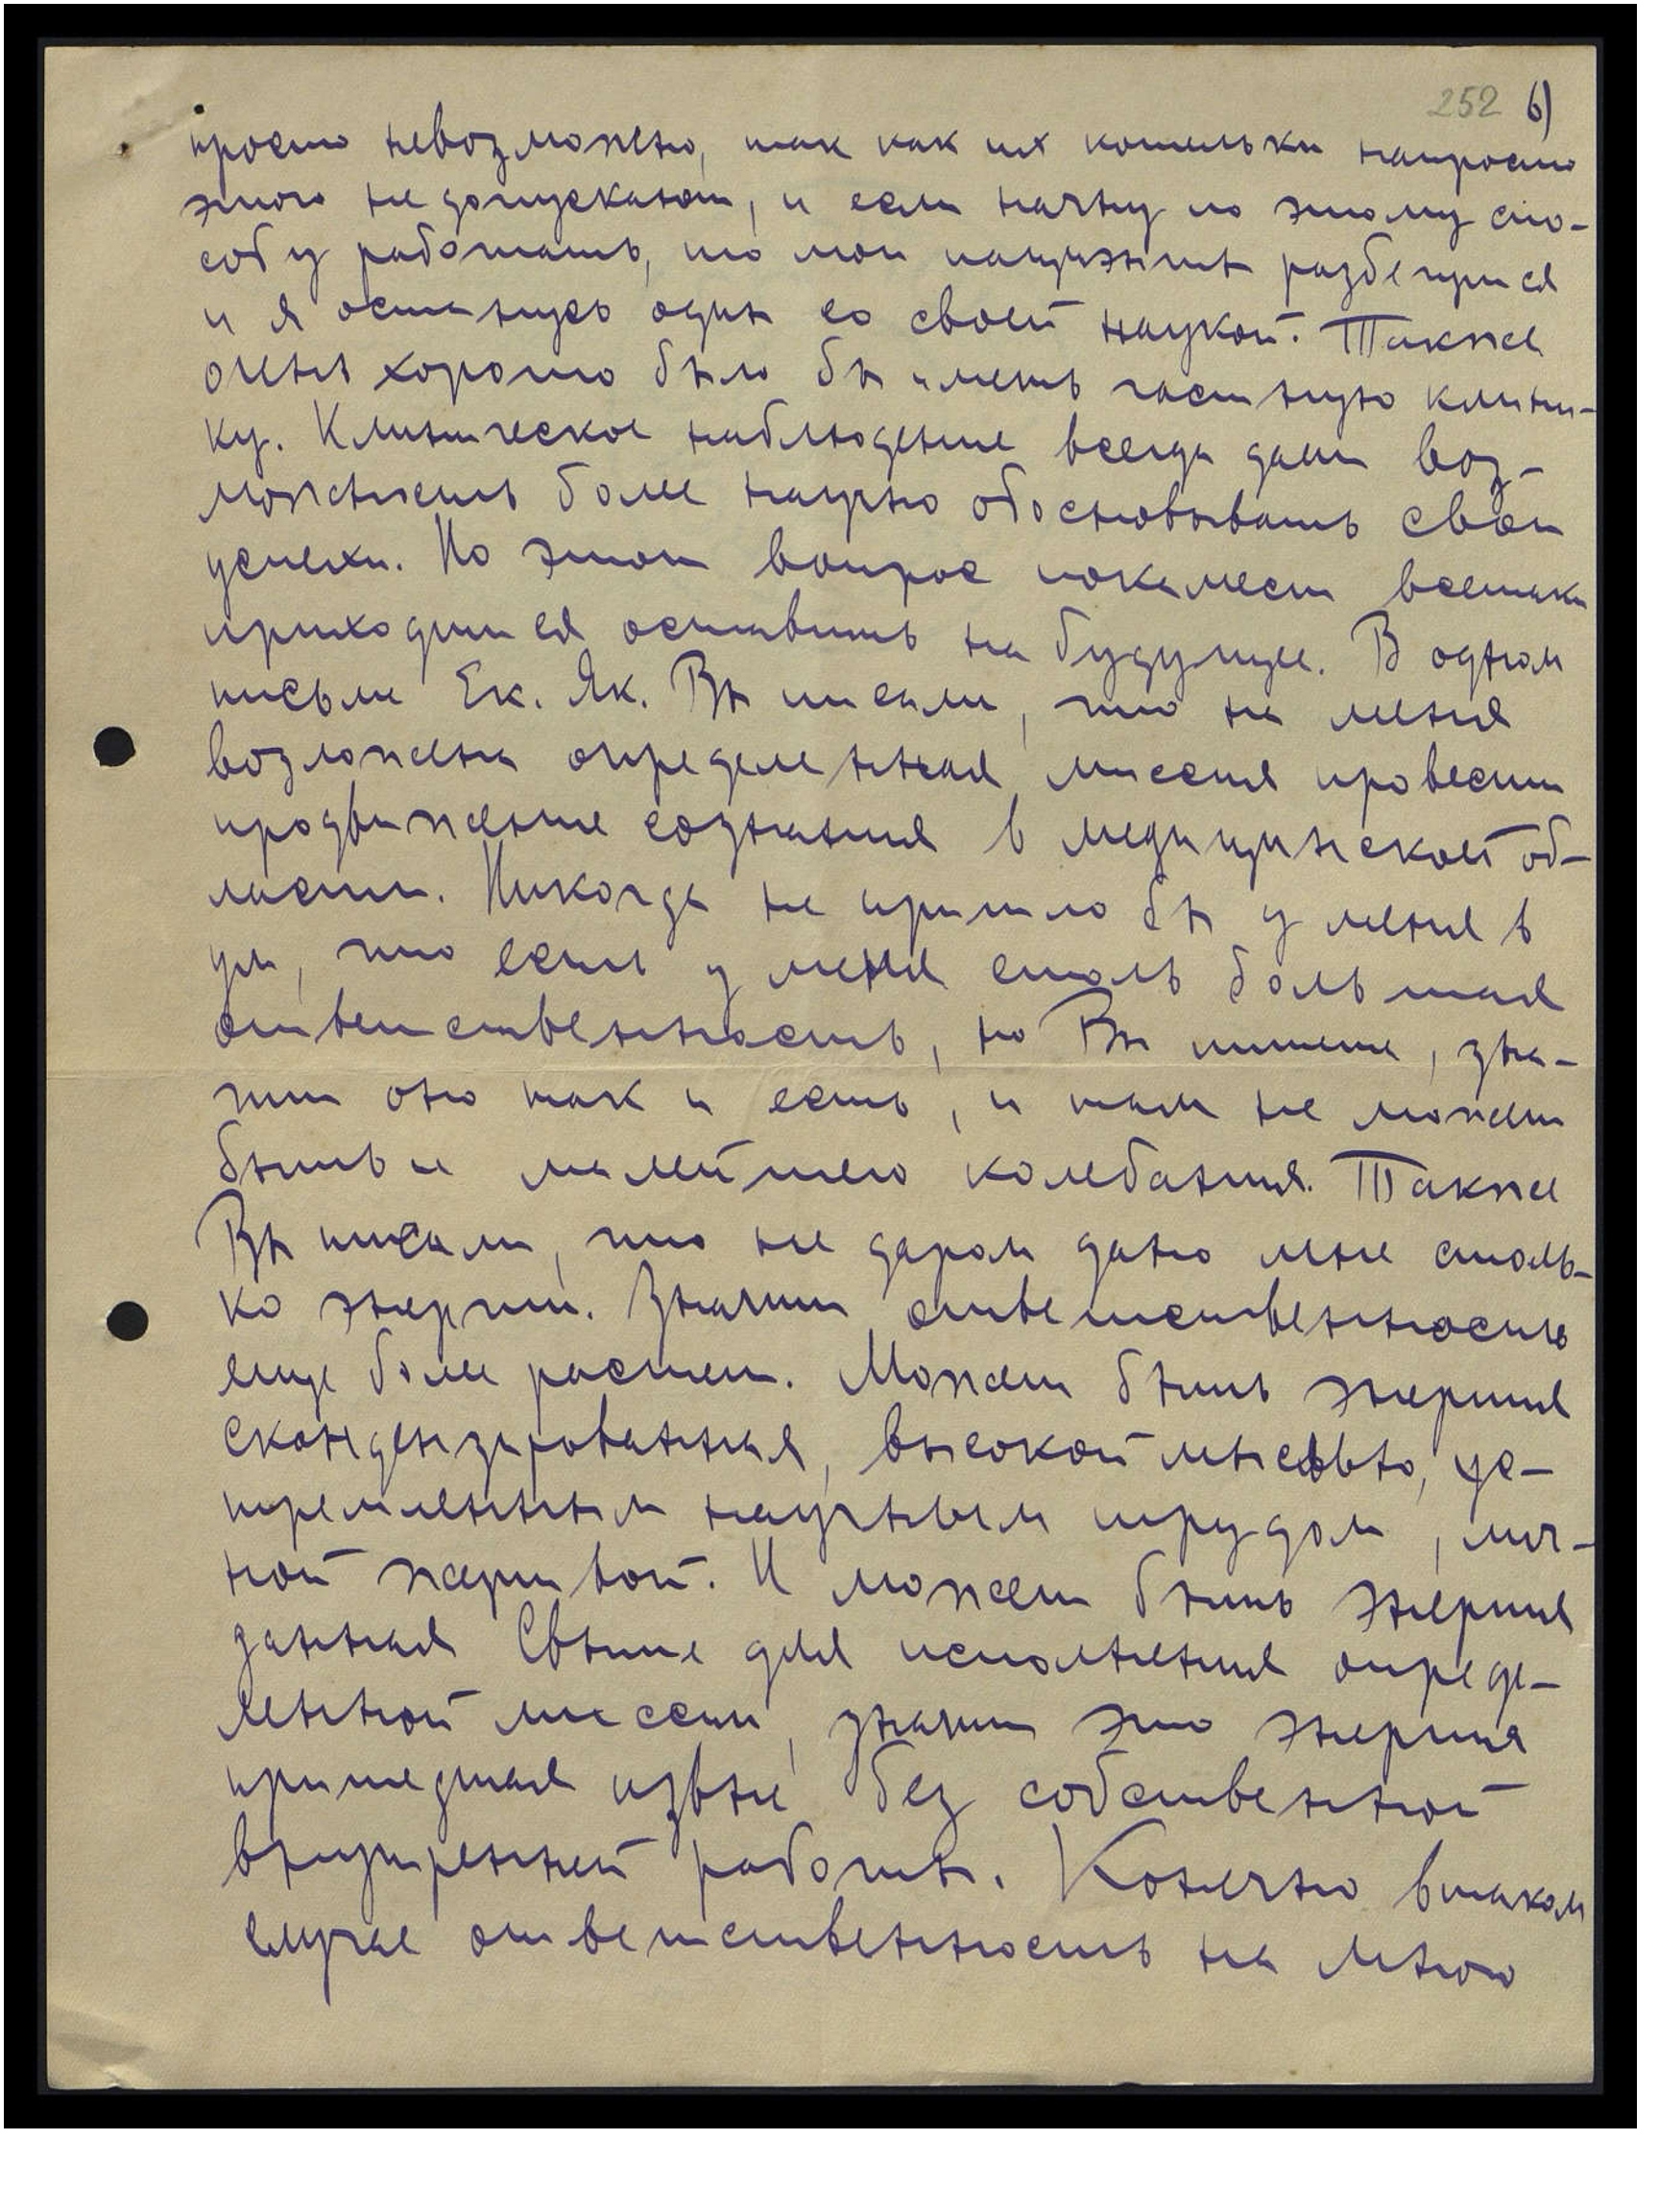 252 6)
просто невозможно, так как их кошельки напросто
этого не допускают, и если начну по этому спо-
собу работать, то мои пациэнты разбегутся
и я останусь один со своей наукой. Также
очень хорошо было бы иметь частную клини-
ку. Клиническое наблюдение всегда дает воз-
можность более научно обосновывать свои
успехи. Но этот вопрос покамест всетаки
приходится оставить на будущее. В одном
письме Ек. Як. Вы писали, что на меня
возложена определенная миссия провести
продвижение сознания в медицинской об-
ласти. Никогда не пришло бы у меня в
ум, что есть у меня столь большая
ответственность, но Вы пишете, зна-
чит оно так и есть, и там не может
быть и малейшего колебания. Также
Вы писали, что не даром дано мне столь-
ко энергии. Значит ответственность
еще более растет. Может быть энергия
скондензированная, высокой мыслью, ус-
тремленным научным трудом, лич-
ной жертвой. И может быть энергия
данная Свыше для исполнения опреде-
ленной миссии, значит это энергия
пришедшая извне без собственной
внутренней работы. Конечно в таком
случае ответственность на мною